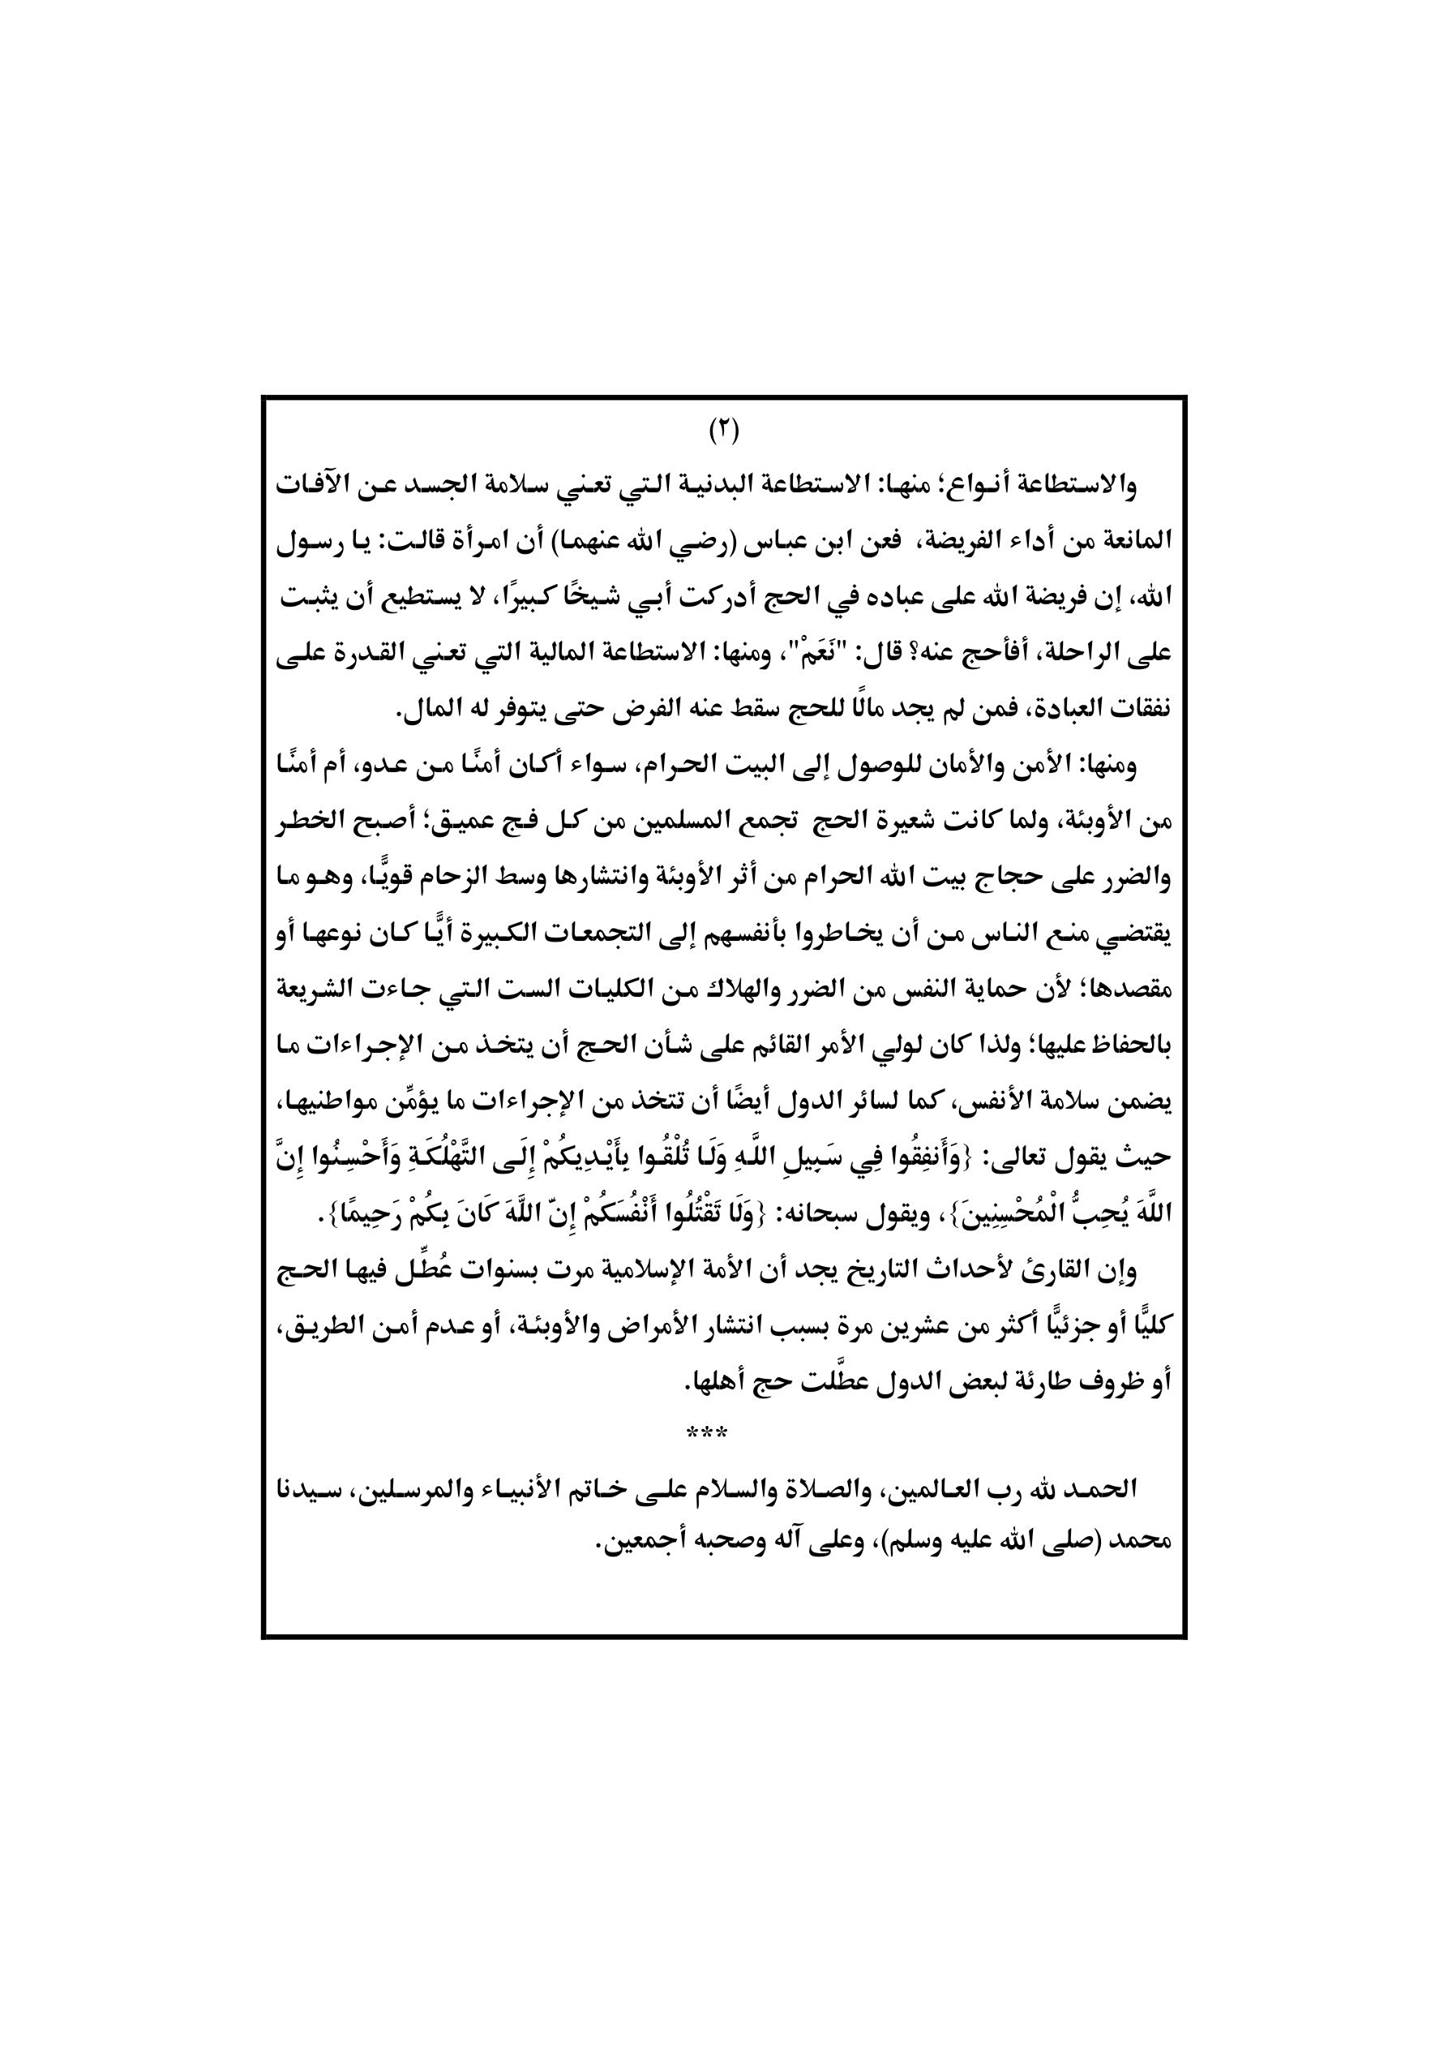 (٢)
والاستطاعة أنواع؛ منها: الاستطاعة البدنية التي تعني سلامة الجسد عن الآفات
المانعة من أداء الفريضة، فعن ابن عباس (رضي الله عنهما) أن امرأة قالت: يا رسول
الله، إن فريضة الله على عباده في الحج أدركت أبي شيخًا كبيرًا، لا يستطيع أن يثبت
على الراحلة، أفأحج عنه؟ قال: "نَعَمْ"، ومنها: الاستطاعة المالية التي تعني القدرة على
نفقات العبادة، فمن لم يجد مالًا للحج سقط عنه الفرض حتى يتوفر له المال.
ومنها: الأمن والأمان للوصول إلى البيت الحرام، سواء أكان أمنًا من عدو، أم أمنًا
من الأوبئة، ولما كانت شعيرة الحج تجمع المسلمين من كل فج عميق؛ أصبح الخطر
والضرر على حجاج بيت الله الحرام من أثر الأوبئة وانتشارها وسط الزحام قويًّا، وهو ما
يقتضي منع الناس من أن يخاطروا بأنفسهم إلى التجمعات الكبيرة أيًّا كان نوعها أو
مقصدها؛ لأن حماية النفس من الضرر والهلاك من الكليات الست التي جاءت الشريعة
بالحفاظ عليها؛ ولذا كان لولي الأمر القائم على شأن الحج أن يتخذ من الإجراءات ما
يضمن سلامة الأنفس، كما لسائر الدول أيضًا أن تتخذ من الإجراءات ما يؤمِّن مواطنيها،
حيث يقول تعالى: {وَأَنفِقُوا فِي سَبِيلِ اللَّهِ وَلَا تُلْقُوا بِأَيْدِيكُمْ إِلَى التَّهْلُكَةِ وَأَحْسِنُوا إِنَّ
اللَّهَ يُحِبُّ الْمُحْسِنِينَ}، ويقول سبحانه: {وَلَا تَقْتُلُوا أَنْفُسَكُمْ إِنّ اللَّهَ كَانَ بِكُمْ رَحِيمًا}.
وإن القارئ لأحداث التاريخ يجد أن الأمة الإسلامية مرت بسنوات عُطِّل فيها الحج
كليًّا أو جزئيًّا أكثر من عشرين مرة بسبب انتشار الأمراض والأوبئة، أو عدم أمن الطريق،
أو ظروف طارئة لبعض الدول عطَّلت حج أهلها.
***
الحمد لله رب العالمين، والصلاة والسلام على خاتم الأنبياء والمرسلين، سيدنا
محمد (صلى الله عليه وسلم)، وعلى آله وصحبه أجمعين.